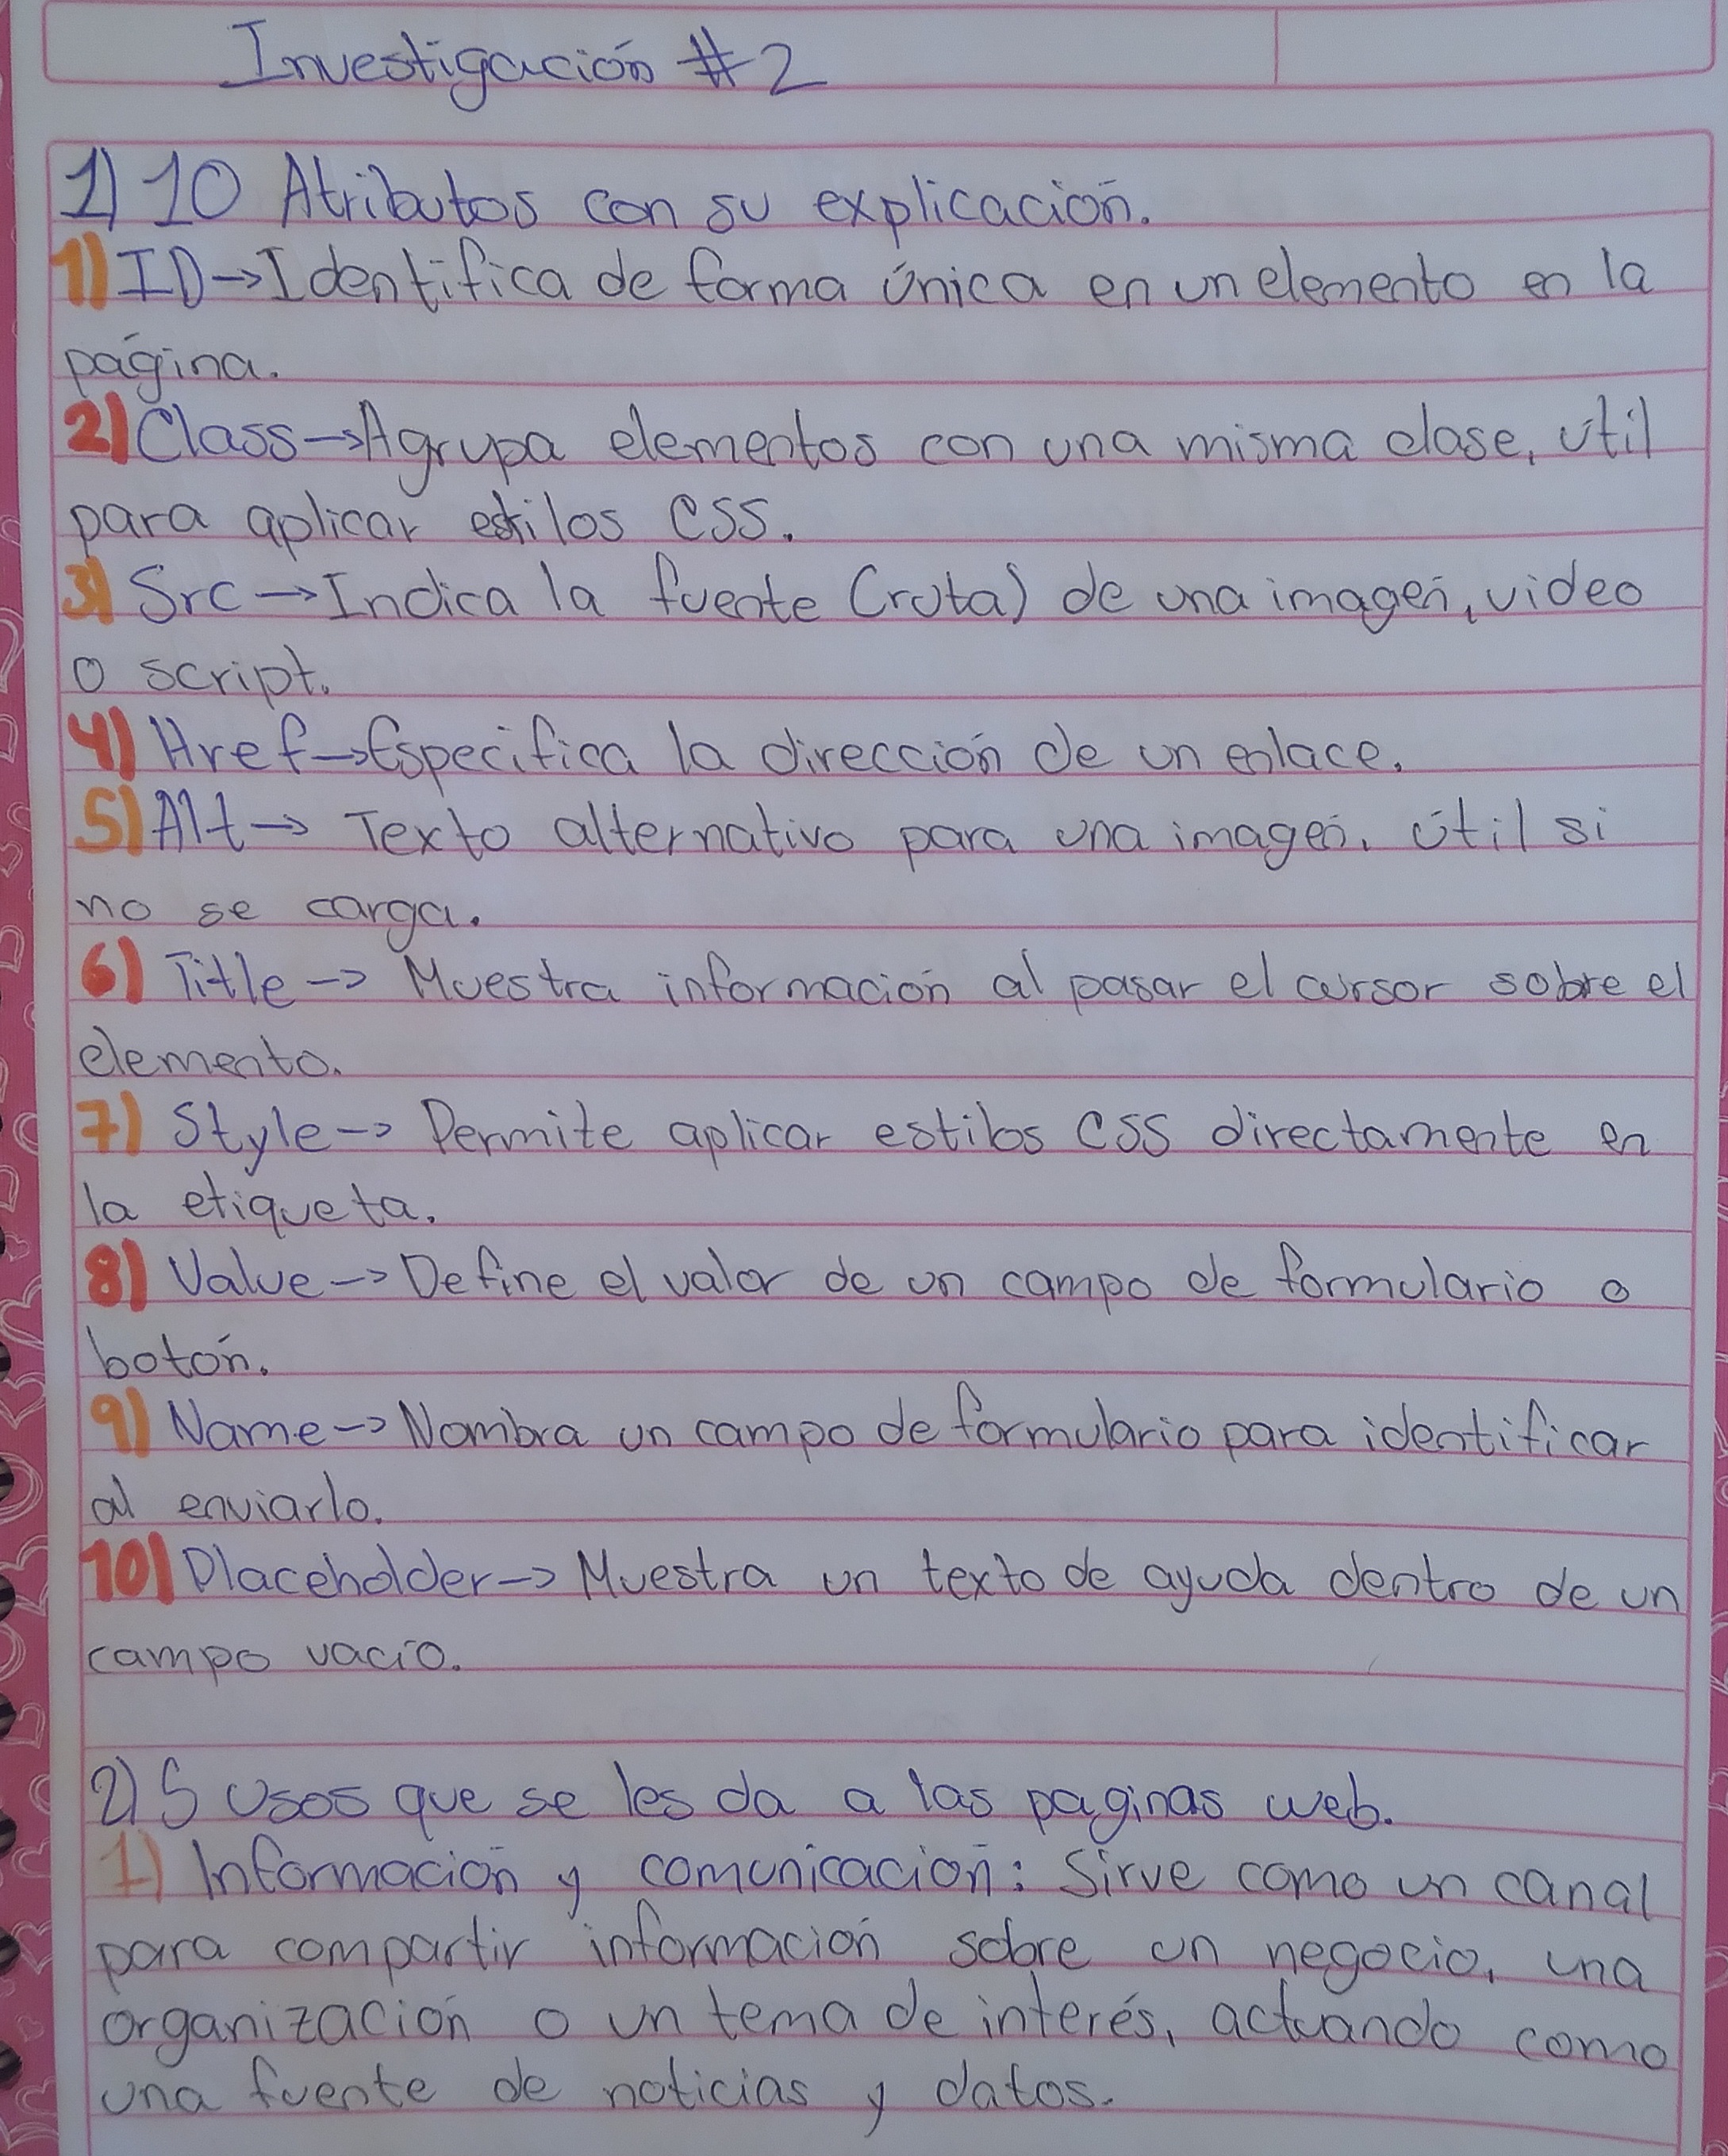 Investigación #2
1) 10 Atributos con su explicación.
1) ID→Identifica de forma única en un elemento en la
página.
2) Class→Agrupa elementos con una misma clase, útil
para aplicar estilos CSS.
3) Src→Indica la fuente (ruta) de una imagen, video
o script.
4) Href→Especifica la dirección de un enlace.
5) Alt→ Texto alternativo para una imagen. útil si
no se carga.
6) Title→ Muestra información al pasar el cursor sobre el
elemento.
7) Style→ Permite aplicar estilos CSS directamente en
la etiqueta.
8) Value→ Define el valor de un campo de formulario o
botón.
9) Name→ Nombra un campo de formulario para identificar
al enviarlo.
10) Placeholder→ Muestra un texto de ayuda dentro de un
campo vacío.
2) 5 Usos que se les da a las paginas web.
1) Información y comunicación: Sirve como un canal
para compartir información sobre un negocio, una
organización o un tema de interés, actuando como
una fuente de noticias y datos.